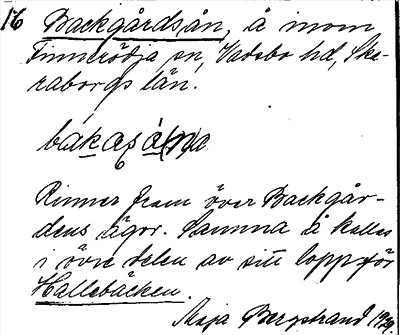 16 Backgårdsån, å inom
Finnerödja sn, Vadsbo hd, Ska-
raborgs län.
Rinner fram över Backgår-
dens ägor. Samma å kallas
i övre delen av sitt lopp för
Hallebäcken.
Maja Bergstrand 1929.